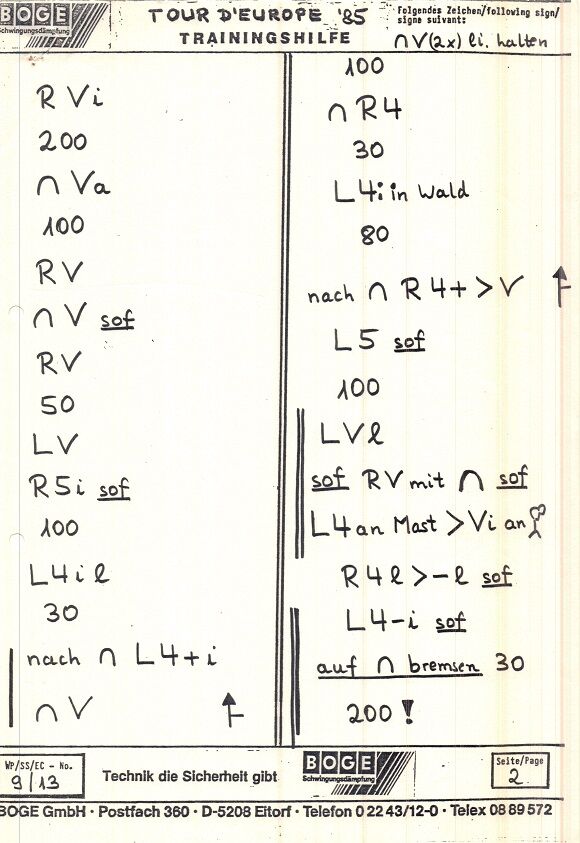 BOGE
Schwingungsdämpfung
TOUR D'EUROPE '85
TRAININGSHILFE
Folgendes Zeichen/following sign/
signe suivant:
∩ V(2x) li. halten
R Vi
200
∩ Va
100
RV
∩ V sof
RV
50
LV
R5i sof
100
L4il
30
nach ∩ L4+i
∩ V
100
∩ R4
30
L4i in Wald
80
nach ∩ R4+>V
L5 sof
100
LVl
sof RV mit ∩ sof
L4 an Mast >Vi an
R4l>-l sof
L4-i sof
auf ∩ bremsen 30
200!
WP/SS/EC - No.
9/13
Technik die Sicherheit gibt
BOGE
Schwingungsdämpfung
Seite/Page
2
BOGE GmbH · Postfach 360 · D-5208 Eitorf · Telefon 0 22 43/12-0 · Telex 08 89 572